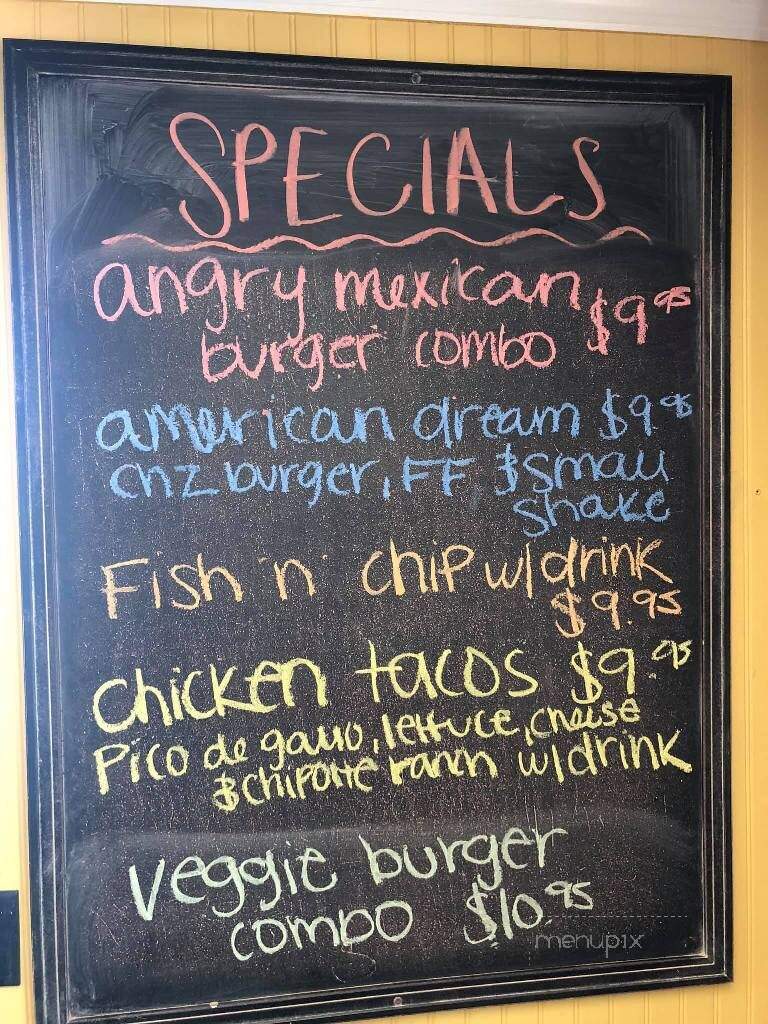 SPECIALS
angry mexican $9.95
burger combo
american dream $9.95
chz burger, FF & small
shake
Fish 'n' chip w/drink
$9.95
chicken tacos $9.95
Pico de gallo, lettuce, cheese
& chipotle ranch w/drink
veggie burger
combo $10.95
menupix